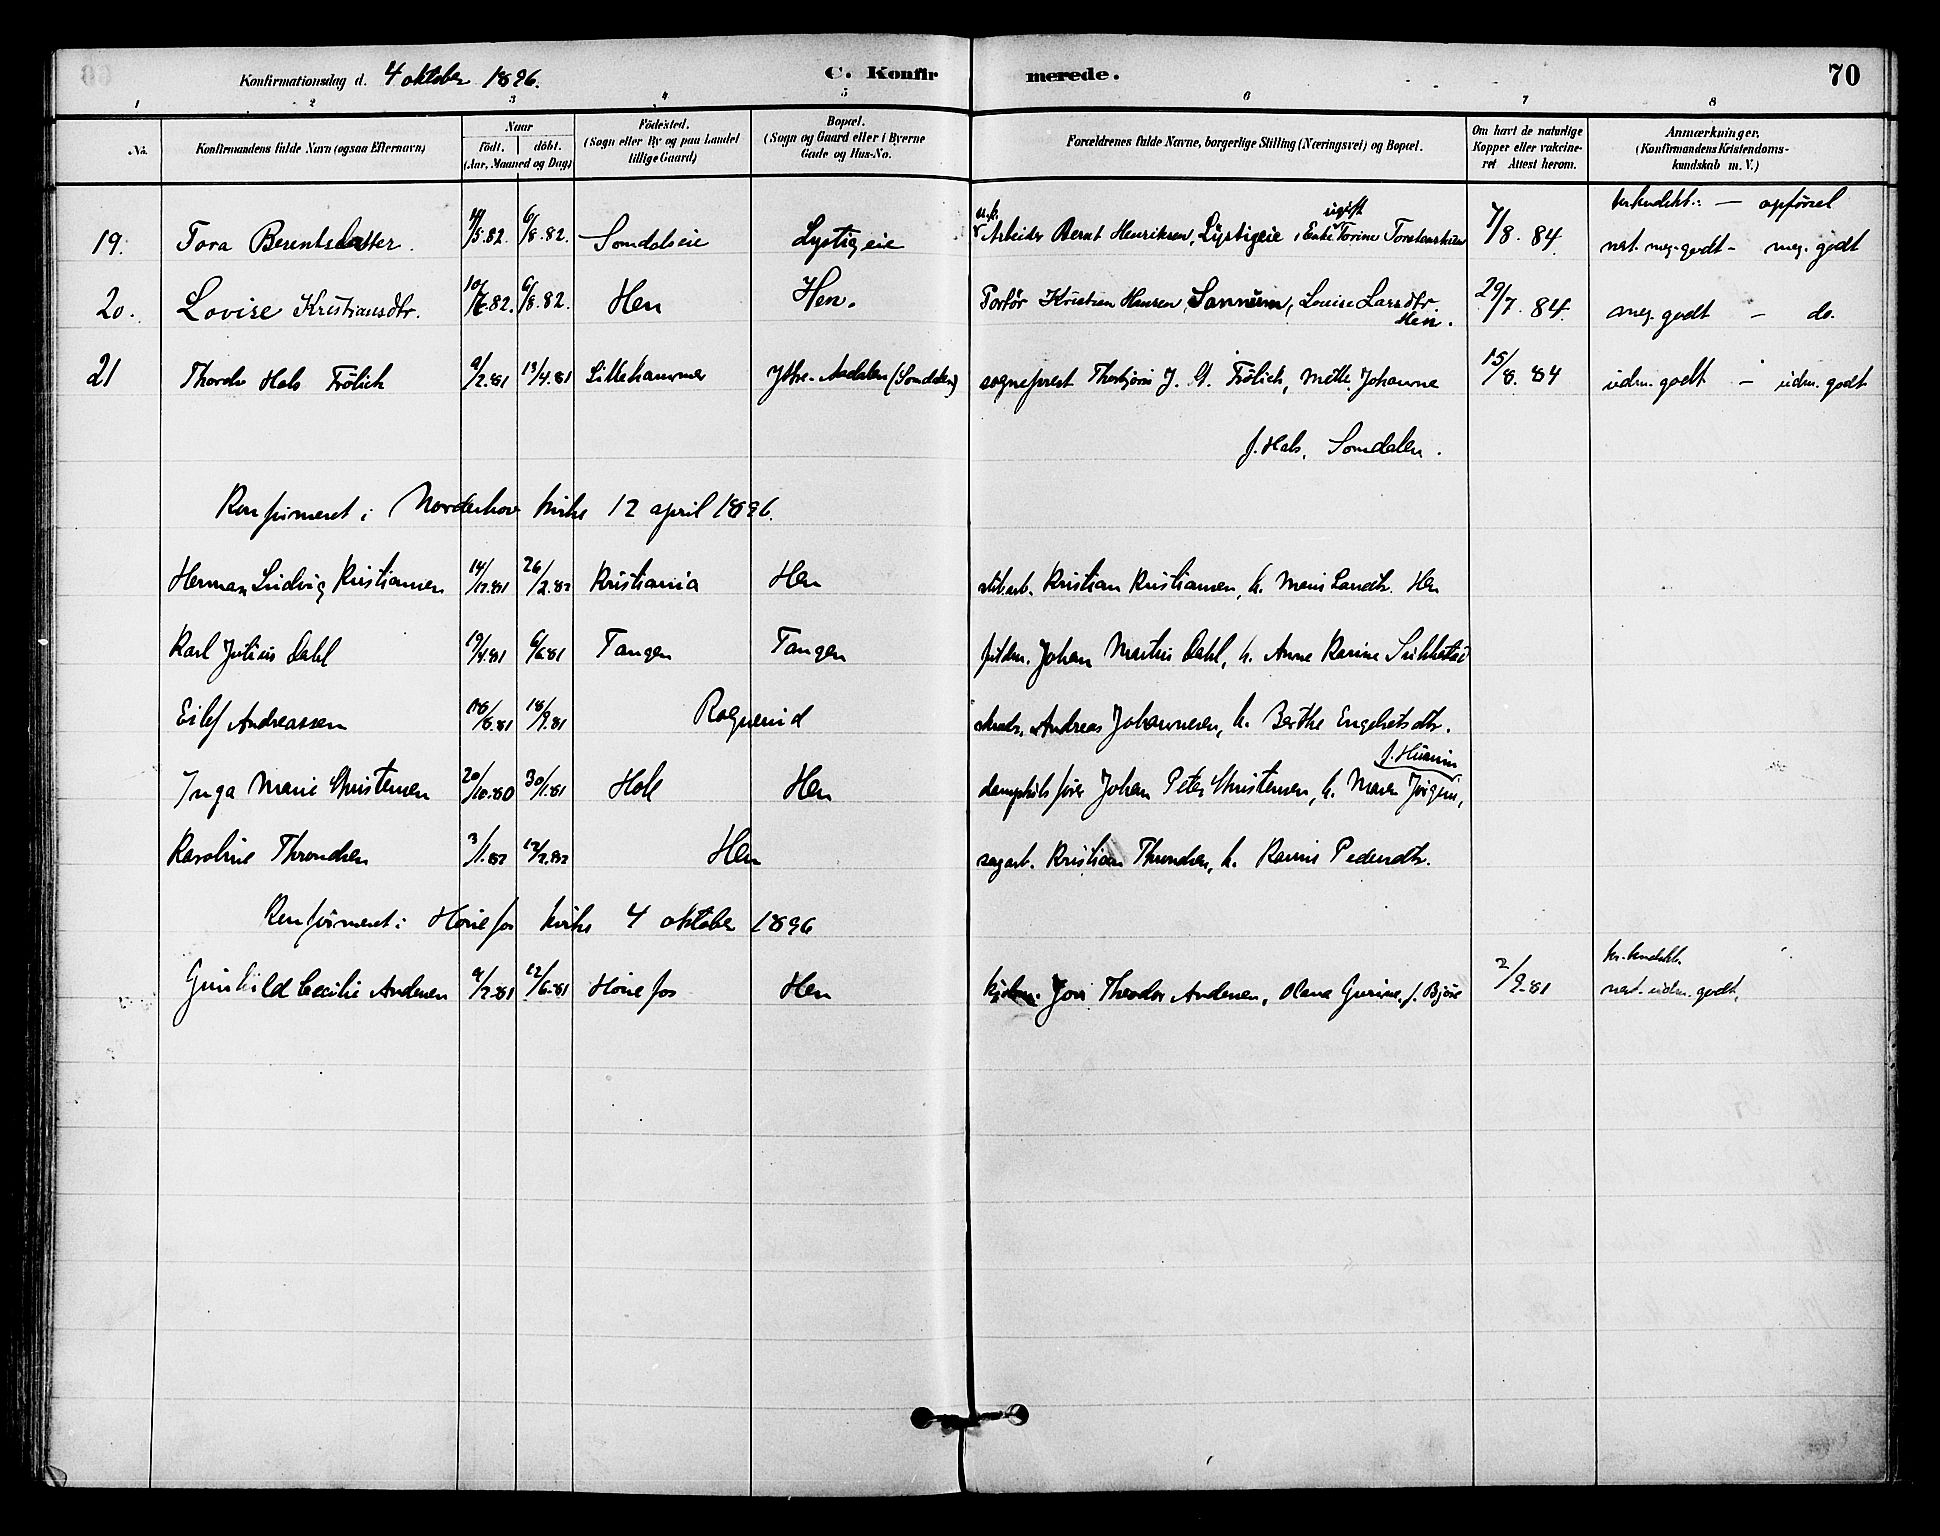 Konfirmationsdag d. 4 oktober 1896. C. Konfirmerede. 70
1 2 3 4 5 6 7 8
No. Konfirmandens fulde Navn (ogsaa Efternavn) Naar Födt. döbt. (Aar, Maaned og Dag) Födested. (Sogn eller By og paa Landet tillige Gaard) Bopæl. (Sogn og Gaard eller i Byerne Gade og Hus-No. Forældrenes fulde Navne, borgerlige Stilling (Næringsvei) og Bopæl. Om havt de naturlige Kopper eller vakcineret Attest herom. Anmærkninger. (Konfirmandens Kristendomskundskab m. V.)
kr.kundskb.: — opförsel
19. Tora Berentsdatter. /5.82. 6/8.82. Somdalseie Lystigeie Arbeider Bernt Henriksen, Lystigeie, ugift Enke Torine 7/8. 84. nest. meg. godt - meg. godt
20. Lovise Kristiansdtr. 10/ .82. 6/8.82. Hen Hen. Kristian Hansen, Lovise Larsdtr Hen. 29/7. 84. meg. godt - do.
21 Thordv Hals Frölich 9/2.81 13/4.81 Lillehammer Ytre-Aadalen (Somdalen) sogneprest Thorbjørn J. G. Frölich, Mette Johanne 15/8. 84 udm. godt - udm. godt
f. Hals, Somdalen.
Konfirmeret i Norderhov kirke 12 april 1896.
Herman Ludvig Kristiansen 14/12.81 26/2.82 Kristiania Hen Kristian Kristiansen, h. Hen
Karl Julius Dahl 19/4.81 6/6.81 Tangen Tangen Johan Martin Dahl, h. Anne Karine
Eilef Andreassen /8.81 18/9.81 Rognerud Andreas Johannesen, h. Berthe Engebretsdtr.
Inga Marie Christensen 20/10.80 30/1.81 Hole Hen dampbåtfører Johan Peter Christensen, h. Maren
Karoline Throndsen 3/1.82 12/2.82 Hen sagarb. Kristian Throndsen, h. Karine Pedersdtr.
Konfirmeret i Hönefos kirke 4 oktober 1896
Gunhild Cecilie Andersen 9/2.81 12/6.81 Hönefos Hen Theodor Andersen, Olena Gurine f. Björe 2/9.81 kr. kundskb.
nest. udm. godt.